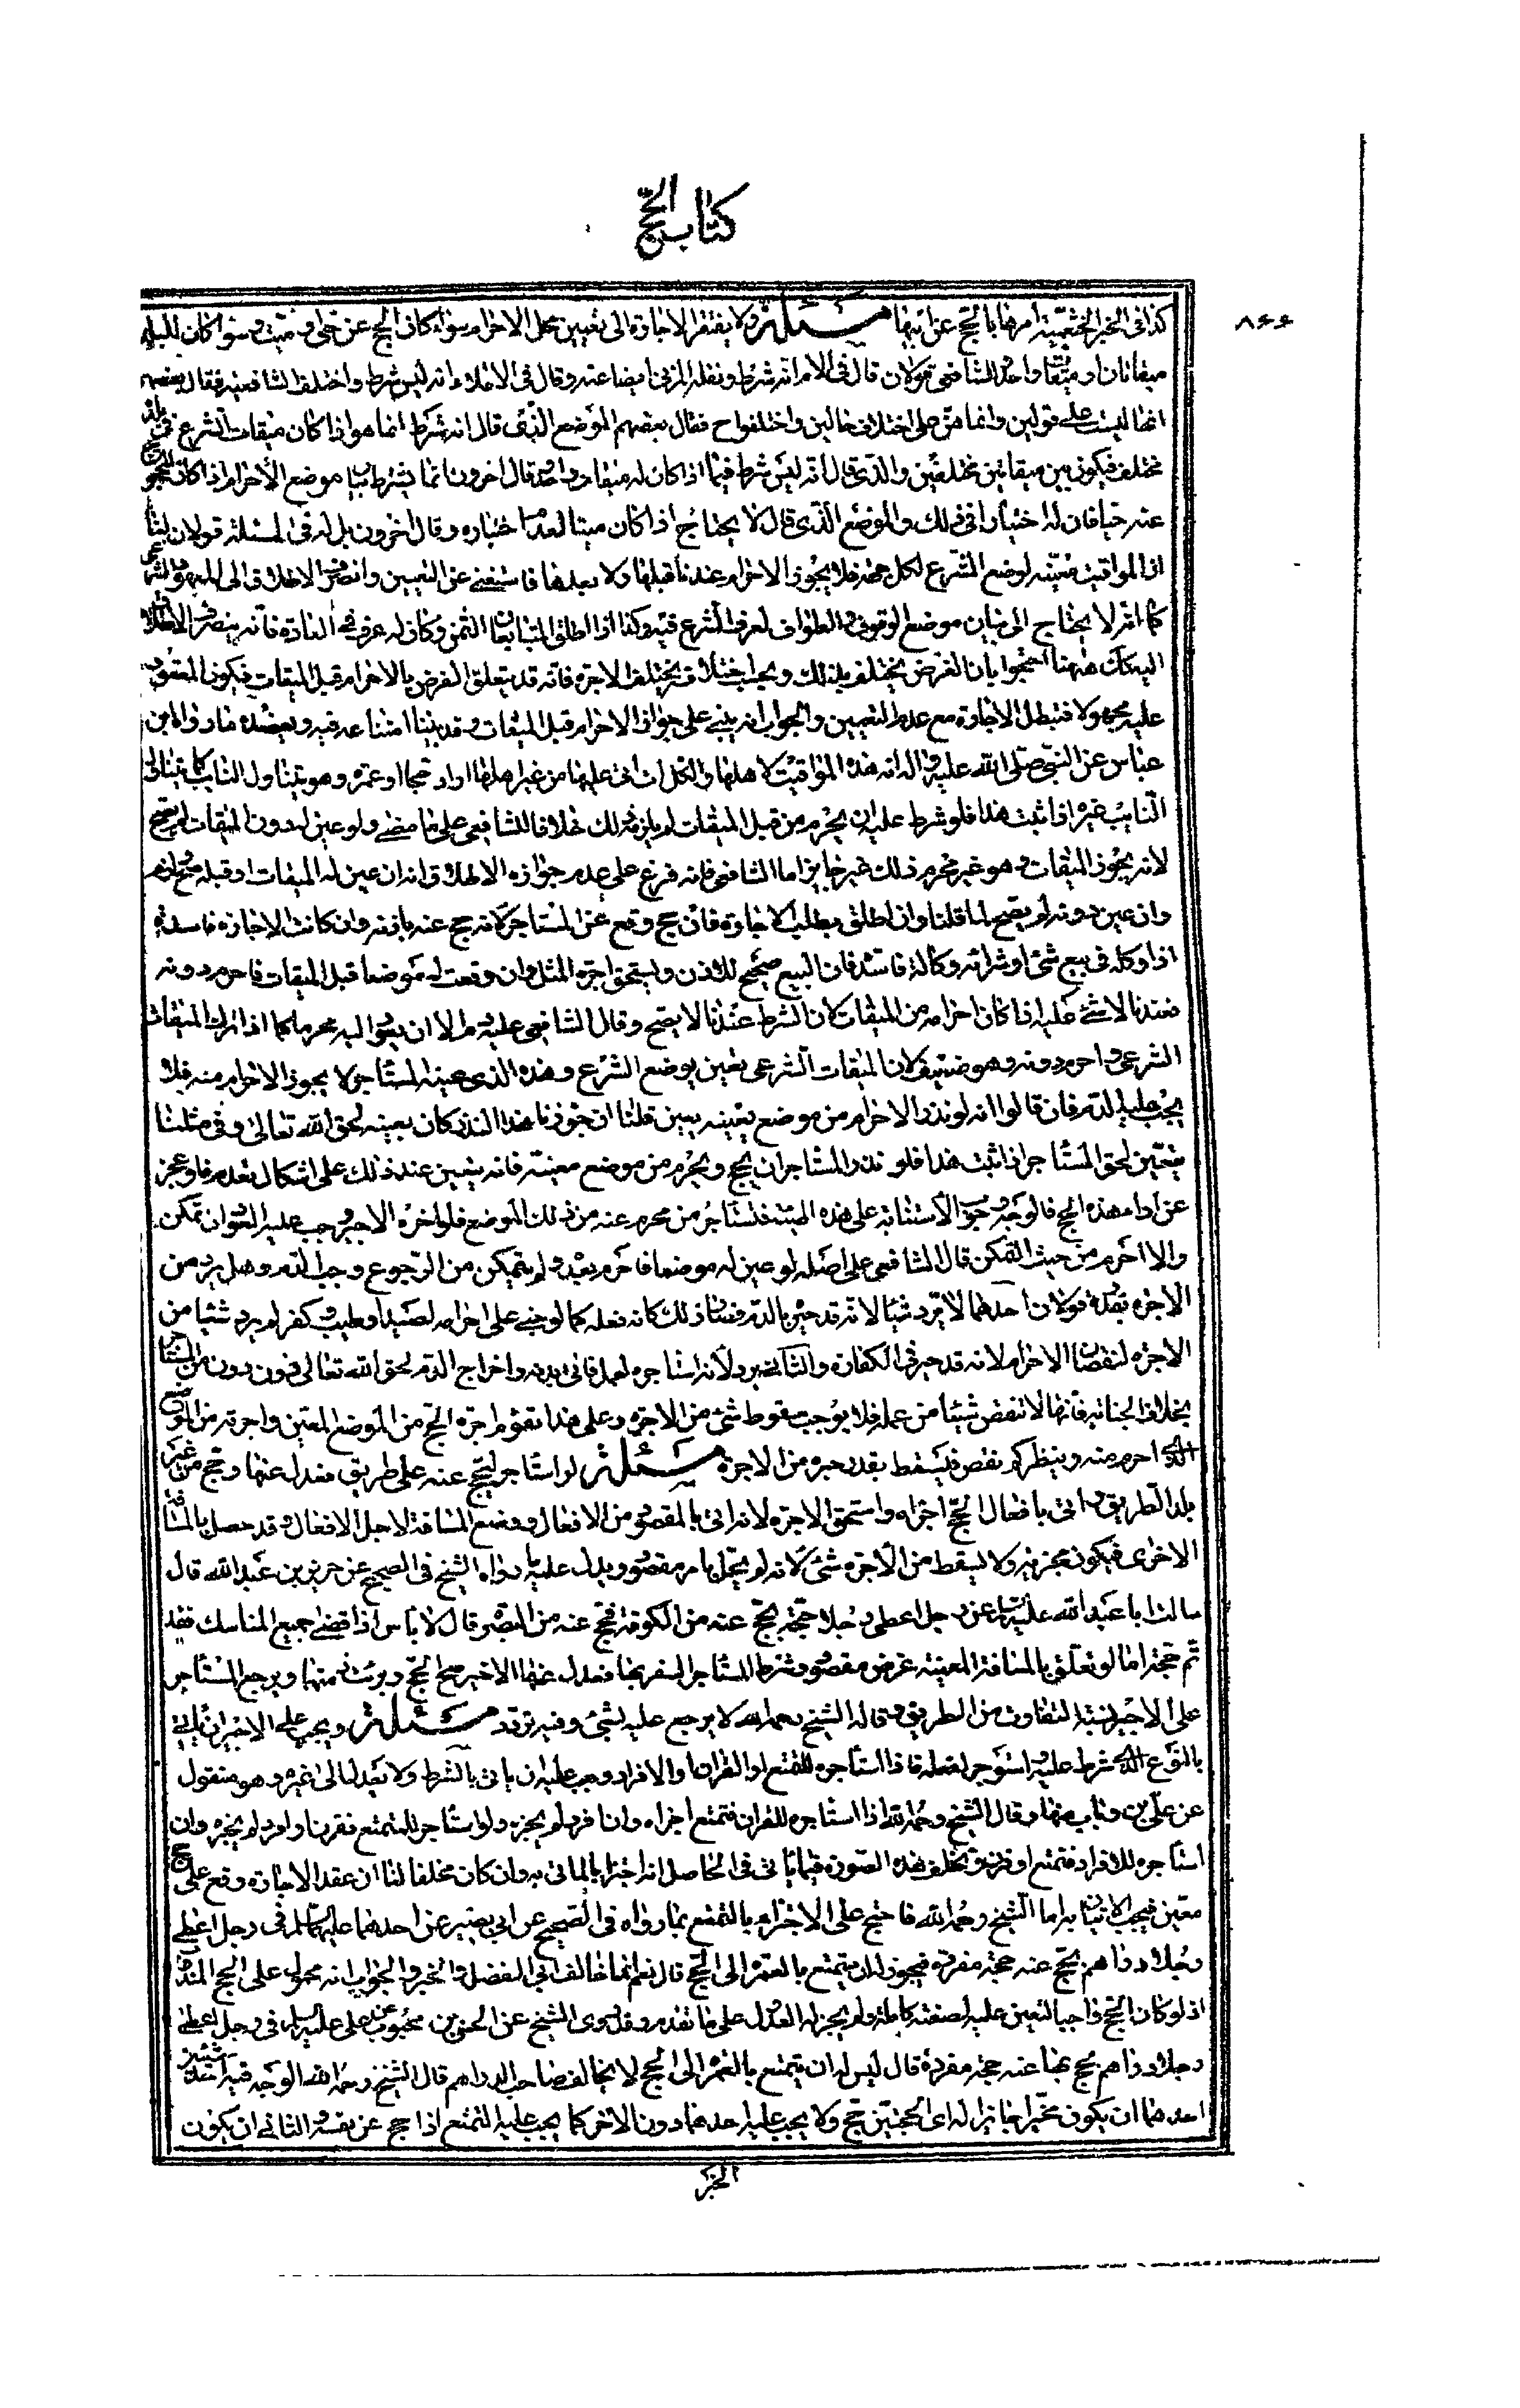 كتاب الحج
٨٦٦
كذا في الخبر الخثعمية أمرها بالحج عن أبيها مسئلة ولا يفتقر الاجارة الى تعيين محل الاحرام سواء كان الحج عن حي او ميت وسواء كان للبلد
ميقاتان او ميقات واحد للشافعي قولان قال في الام انه شرط ونقله المزني ايضا عنه وقال في الاملاء انه ليس شرط واختلف الشافعية فقال بعضهم
انها ليست على قولين وانما هي على اختلاف حالين واختلفوا ح فقال بعضهم الموضع الذي قال انه شرط انما هو اذا كان ميقات الشرع في بلده
مختلف فيكون بين ميقاتين مختلفين والذي قال انه ليس شرط فيما اذا كان له ميقات واحد وقال اخرون انما يشترط بيان موضع الأحرام اذا كان المحجوج
عنه حيا فان له اختيارا في ذلك والموضع الذي قال لا يحتاج اذا كان ميتا لعدم اختياره وقال اخرون بل له في المسئلة قولان لنا
ان المواقيت معينه لوضع الشرع لكل جهة فلا يجوز الاحرام عندنا قبلها ولا بعدها فاستغنى عن التعيين وانصرف الاطلاق الى المعهود الشرعي
كما انه لا يحتاج الى بيان موضع الوقوف والطواف لعرف الشرع فيه وكذا اذا اطلق المتبايعان الثمن وكان له عرف في العادة فانه ينصرف الاطلاق
اليه كك ههنا احتجوا بان الغرض يختلف بذلك ويجب باختلافه يختلف الاجرة فانه قد يتعلق الغرض بالاحرام قبل الميقات فيكون المعقود
عليه مجهولا فتبطل الاجارة مع عدم التعيين والجواب انه يبنى على جواز الاحرام قبل الميقات وقد بينا امتناعه فيه ويعضده ما رواه ابن
عباس عن النبي صلى الله عليه واله انه هذه المواقيت لاهلها ولكل ات اتى عليها من غير اهلها اراد حجا او عمرة وهو يتناول النايب كما يتناول
النايب غيره اذا ثبت هذا فلو شرط عليه ان يحرم من قبل الميقات لم يلزمه ذلك خلافا للشافعي على ما مضى ولو عين له دون الميقات لم يصح
لانه يجوز الميقات وهو غير محرم ذلك غير جايز اما الشافعي فانه فرع على عدم جوازه الاطلاق انه ان عين له الميقات او قبله صح ولزم
وان عين دونه لم يصح لما قلنا وان اطلق بطلت الاجارة فان حج وقع عن المستاجر لانه حج عنه باذنه وان كانت الاجارة فاسدة
اذا وكله في بيع شئ او شرائه وكالة فاسدة فان البيع صحيح للاذن ويستحق اجرة المثل وان وقعت له موضعا قبل الميقات فاحرم دونه
فعندنا لا شئ عليه اذا كان احرامه من الميقات لان الشرط عندنا لا يصح وقال الشافعي عليه دم الا ان يعود اليه محرما كما اذا ترك الميقات
الشرعي واحرم دونه وهو ضعيف لان الميقات الشرعي تعين بوضع الشرع وهذا الذي عينه المستاجر لا يجوز الاحرام منه فلا
يجب عليه الدم فان قالوا انه لو نذر الاحرام من موضع بعينه يتعين قلنا ان جوزنا هذا النذر كان تعينه لحق الله تعالى وفي مثلنا
يتعين لحق المستاجر اذا ثبت هذا فلو نذر المستاجر ان يحج ويحرم من موضع معينه فانه يتعين عند ذلك على اشكال تقدم فلو عجز
عن اداء هذه الحج فالوجه وجوب الاستنابة على هذه الهيئة فيستاجر من يحرم عنه من ذلك الموضع فلو اخره الاجير وجب عليه العود ان تمكن
والا احرم من حيث التمكن قال الشافعي على اصله لو عين له موضعا فاحرم بعده ولم يتمكن من الرجوع وجب الدم وهل يرد من
الاجرة بقدره قولان احدهما لا يرد شيئا لانه قد جبر بالدم فصار ذلك كانه فعله كما لو جنى على احرامه لصيد او طيب وكفر لم يرد شيئا من
الاجرة لنقصان الاحرام لانه قد جبر في الكفارة والثاني يرد لانه استاجره لعمل فاتى بدونه واخراج الدم لحق الله تعالى دون دون من المستاجر
بخلاف الجناية فانها لا تنقص شيئا من عمله فلا يوجب سقوط شئ من الاجرة وعلى هذا تقوم اجرة الحج من الموضع المعين واجرته من الموضع
الذي احرم منه وينظر كم نقص فيسقط بقدر جبره من الاجرة مسئلة لو استاجر ليحج عنه على طريق فعدل عنها وحج من غير
بلد الطريق واتى بافعال الحج اجزاه واستحق الاجرة لانه اتى بالمقصود من الافعال ووضع المسافة لاجل الافعال وقد حصل بالمسافة
الاخرى فيكون مجزيه ولا يسقط من الأجرة شئ لانه لو يخل بامر مقصود ويدل عليه ما رواه الشيخ في الصحيح عن حريز بن عبد الله قال
سالت ابا عبد الله عليه السلام عن رجل اعطى رجلا حجة يحج عنه من الكوفة فحج عنه من البصرة قال لا باس اذا قضى جميع المناسك فقد
تم حجه اما لو تعلق بالمسافة المعينة غرض مقصود وشرط المستاجر السفر بها فعدل عنها الاخير صح الحج وبرئت ذمتها ويرجع المستاجر
على الاجير بنسبة التفاوت من الطريق وقال الشيخ رحمه الله لا يرجع عليه بشئ وفيه تردد مسئلة ويجب على الاجير ان ياتي
بالنوع الذي شرط عليه استوجر لفعله فاذا استاجره للتمتع او القران او الافراد وجب عليه ان ياتي بالشرط ولا يعدل الى غيره وهو منقول
عن علي بن رئاب منها وقال الشيخ رحمه الله اذا استاجره للقران فتمتع اجزاه وان افرد لم يجزه ولو استاجر للتمتع فقرن او افرد لم يجزه وان
استاجره للافراد فتمتع او قرن ويخلف هذه الصورة فيما ياتي في الحاصل انه اجتزا بالماتي به وان كان مخلفا لنا ان عقد الاجارة وقع على حج
معين فيجب الاتيان به اما الشيخ رحمه الله فاحتج على الاجتزاء بالتمتع بما رواه في الصحيح عن ابي بصير عن احدهما عليهما السلام في رجل اعطى
رجلا دراهم يحج عنه حجة مفردة فيجوز له ان يتمتع بالعمرة الى الحج قال نعم انما خالف الى الفضل والخير والجواب انه محمول على الحج المندوب
اذ لو كان الحج واجبا لتعين عليه لصفته كاملة ولم يجز له العدول على ما تقدم وقد روى الشيخ عن الحسن بن محبوب عن علي عليه السلام في رجل اعطى
رجلا دراهم يحج بها عنه حجة مفردة قال ليس له ان يتمتع بالعمرة الى الحج لا يخالف صاحب الدراهم قال الشيخ رحمه الله الوجه فيه احد شيئين
احدهما ان يكون مخيرا جايزا له اي الحجتين حج ولا يجب عليه احدهما دون الاخر كما يجب عليه التمتع اذا حج عن نفسه والثاني ان يكون
الخبر